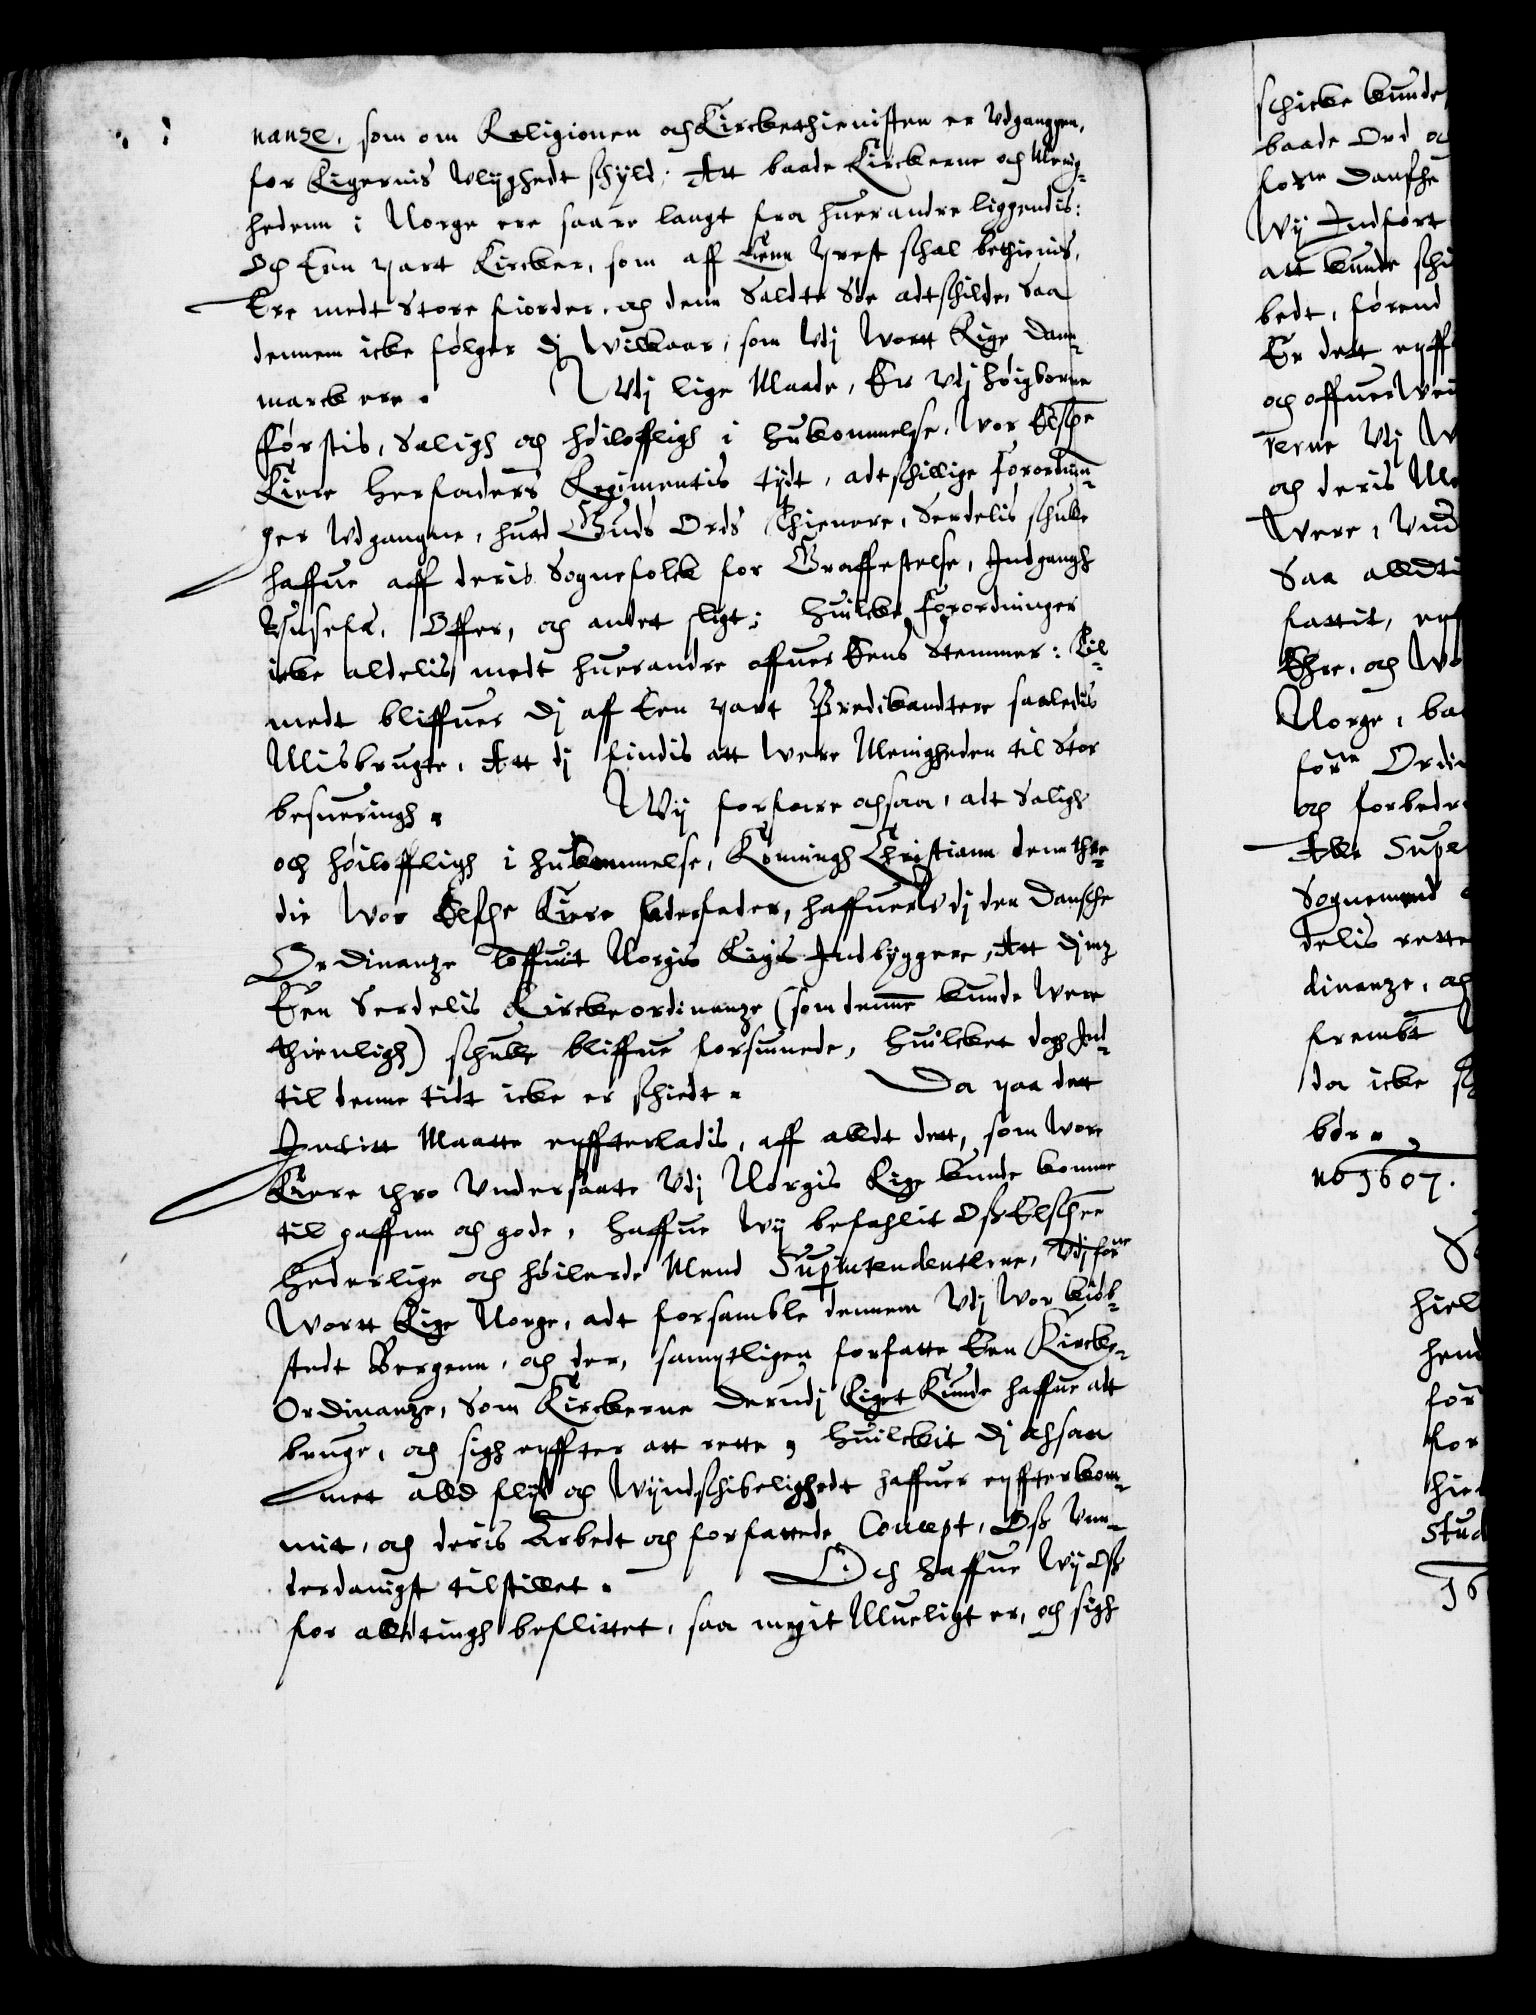 nanze, som om Religionen och Kirckethienisten er Vdganggen,
for Rigernis Vlijghedt schyld; Att baade Kirckerne och Menig-
hedenn i Norge ere saare langt fra huerandre liggendis:
Och Een part Kircker, som aff Eenn Prest schal bethienis,
Ere medt Store fiorder, och denn Saldte Søe adtschilde, Saa
dennem icke følger dj Wilkaar, som Vdj Wortt Rige Dan-
marck ere. Vdj lige Maade, Er Vdj høigborne
Førstis, Saligh och høiloffligh i hukommelse, Wor Elsche
Kiere Herfaders Regimentis tijdt, adtschillige Forordnin-
ger Vdgangne, huad Guds Ords Thienere, Serdelis schulle
haffue aff deris Sognefolck for Graffestelse, Indgangh
Vusefæ, Offer, och andet sligt; Huilcke Forordninger
icke aldelis medt huerandre offuer Eens Stemmer: Til-
medt bliffuer dj aff Een part Predikandtere saaledis
Misbrugte, Att dj findis att Were Menigheden til Stor
besueringh. Wij forfare ochsaa, adt Saligh
och høiloffligh i hukommelse, Konningh Christiann denn thre-
die Wor Elsche Kiere faderfader, haffuer Vdj den Dansche
Ordinanze loffuit Norgis Rigis Indbyggere, Att dj mz
Een Serdelis Kirckeordinanze (som denne kunde Were
thienligh) schulle bliffue forsuinede, Huilcket dogh Ind-
til denne tidt icke er schiedt. Da paa dett
Inttitt Maatte epffterladis, aff alldt dett, som Wore
Kiere thro Vndersaatte Vdj Norgis Rige kunde komme
til gaffnn och gode, Haffue Wij befahlit Oss Elschee
Hederlige och høilerde Mend Superintendentterne, Vdj forne
Wortt Rige Norge, adt forsamble dennem Vdj Wor kiøb-
stedt Bergenn, och der, samptligen forfatte Een Kircke-
Ordinanze, Som Kirckerne derudj Riget Kunde haffue att
bruge, och sigh epffter att rette, Huilckit dj ochsaa
met alld flijt och Wijndschibelighedt haffuer epffterkom-
mit, och deris Arbedt och forfattede Concept, Oss Vnn-
derdanigst tilstillet. Och haffue Wij Oss
for alldtingh beflittet, saa megit Mueligt er, och sigh
schicke kunde
baade Ord oc
forne Dansche
Wij Indført
att kunde schi
bedt,førend
Er dett epff
och offuerWei
rerne Vdj W
och deris Me
Were, Vnd
Saa alldti
fattit, epf
Ehre, och Wo
Norge, ba
forne Ordi
och forbedr
Alle Supe
Sognemend
delis rette
dinanze, och
frembt
da icke sc
bør.
no 1607.
hiel
hend
for
for
hie
Stud
16